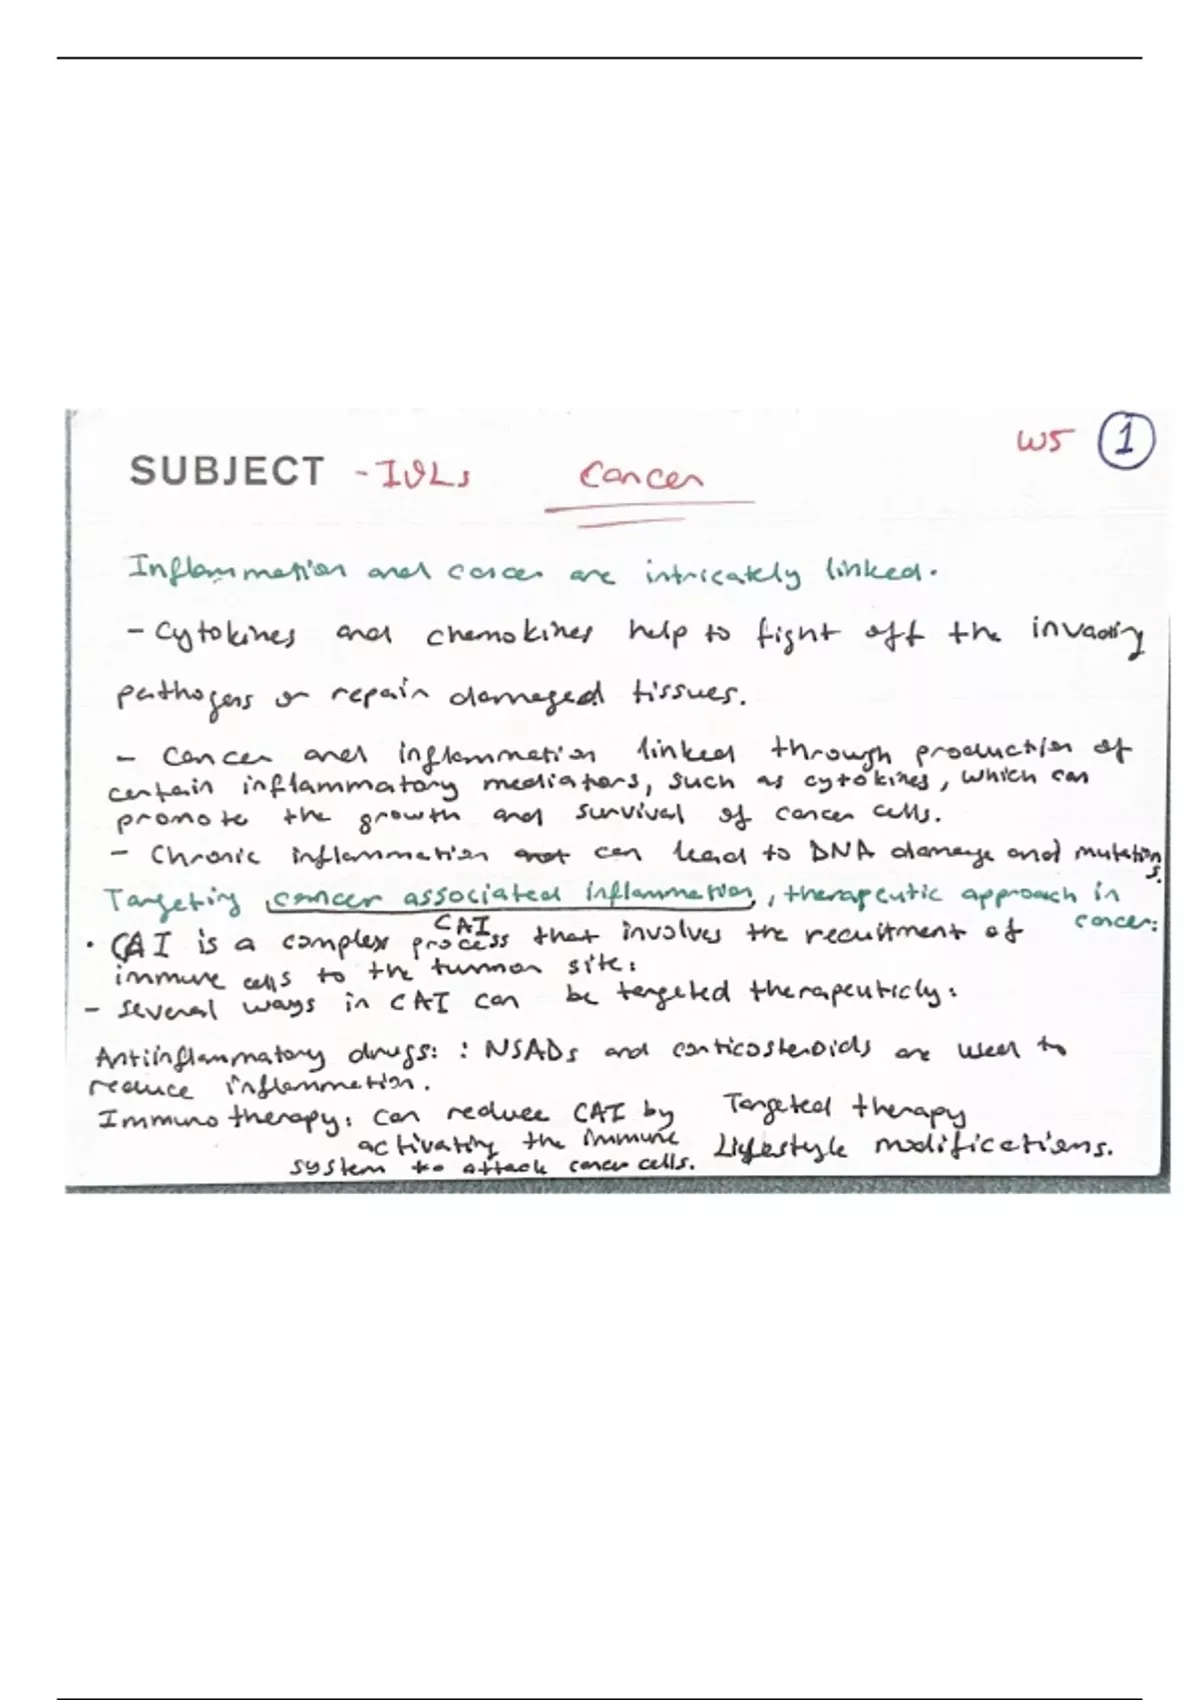 W5 1
SUBJECT - IOLs Cancer
Inflammation and cancer are intricately linked.
- Cytokines and chemokines help to fight off the invading
pathogens or repair damaged tissues.
- Cancer and inflammation linked through production of
certain inflammatory mediators, such as cytokines, which can
promote the growth and survival of cancer cells.
- Chronic inflammation can lead to DNA damage and mutations.
Targeting cancer associated inflammation, therapeutic approach in cancer:
CAI
• CAI is a complex process that involves the recruitment of
immune cells to the tummor site:
- Several ways in CAI can be targeted therapeuticly:
Antiinflammatory drugs: : NSADs and corticosteroids are used to
reduce inflammation.
Immunotherapy: can reduce CAI by
activating the immune
system to attack cancer cells.
Targeted therapy
Lifestyle modifications.